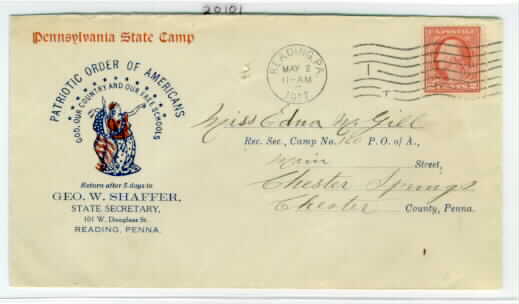 20101
Pennsylvania State Camp
PATRIOTIC ORDER OF AMERICANS
GOD, OUR COUNTRY AND OUR FREE SCHOOLS
Return after 5 days to
GEO. W. SHAFFER,
STATE SECRETARY,
101 W. Douglass St.
READING, PENNA.
READING, PA.
MAY 2
11-AM
1917
Miss Edna McGill
Rec. Sec., Camp No. P. O. of A.,
Main Street,
Chester Springs
Chester County, Penna.